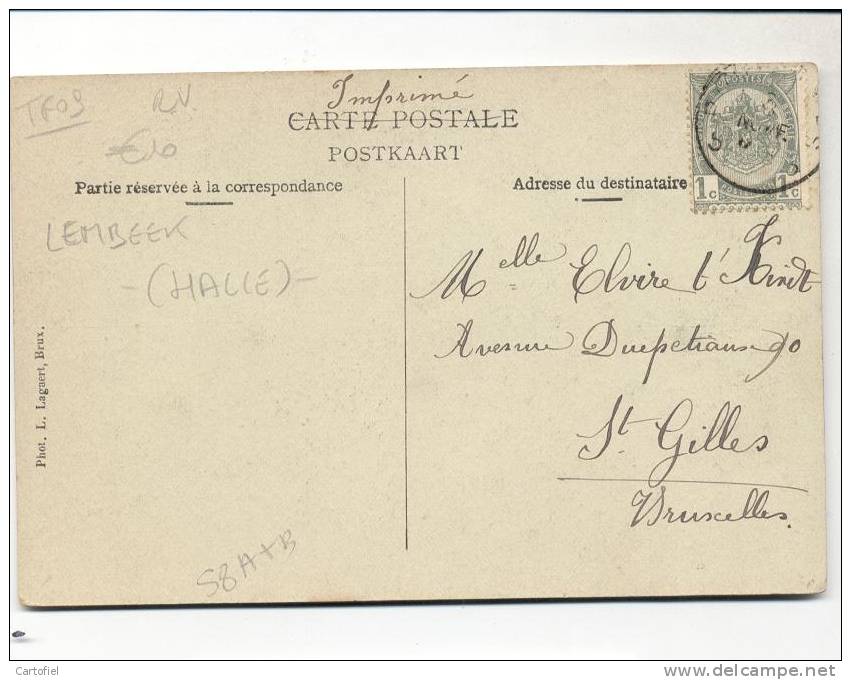 TF09 R.V.
€10
Imprimé
CARTE POSTALE
POSTKAART
Partie réservée à la correspondance
LEMBEEK
-(HALLE)-
Phot. L. Lagaert, Brux.
58 A+B
POSTES
1c 1c
Adresse du destinataire
Melle Elvire t'Kindt
Avenue Ducpetiaux 90
St Gilles
Bruxelles.
Cartofiel
www.delcampe.net